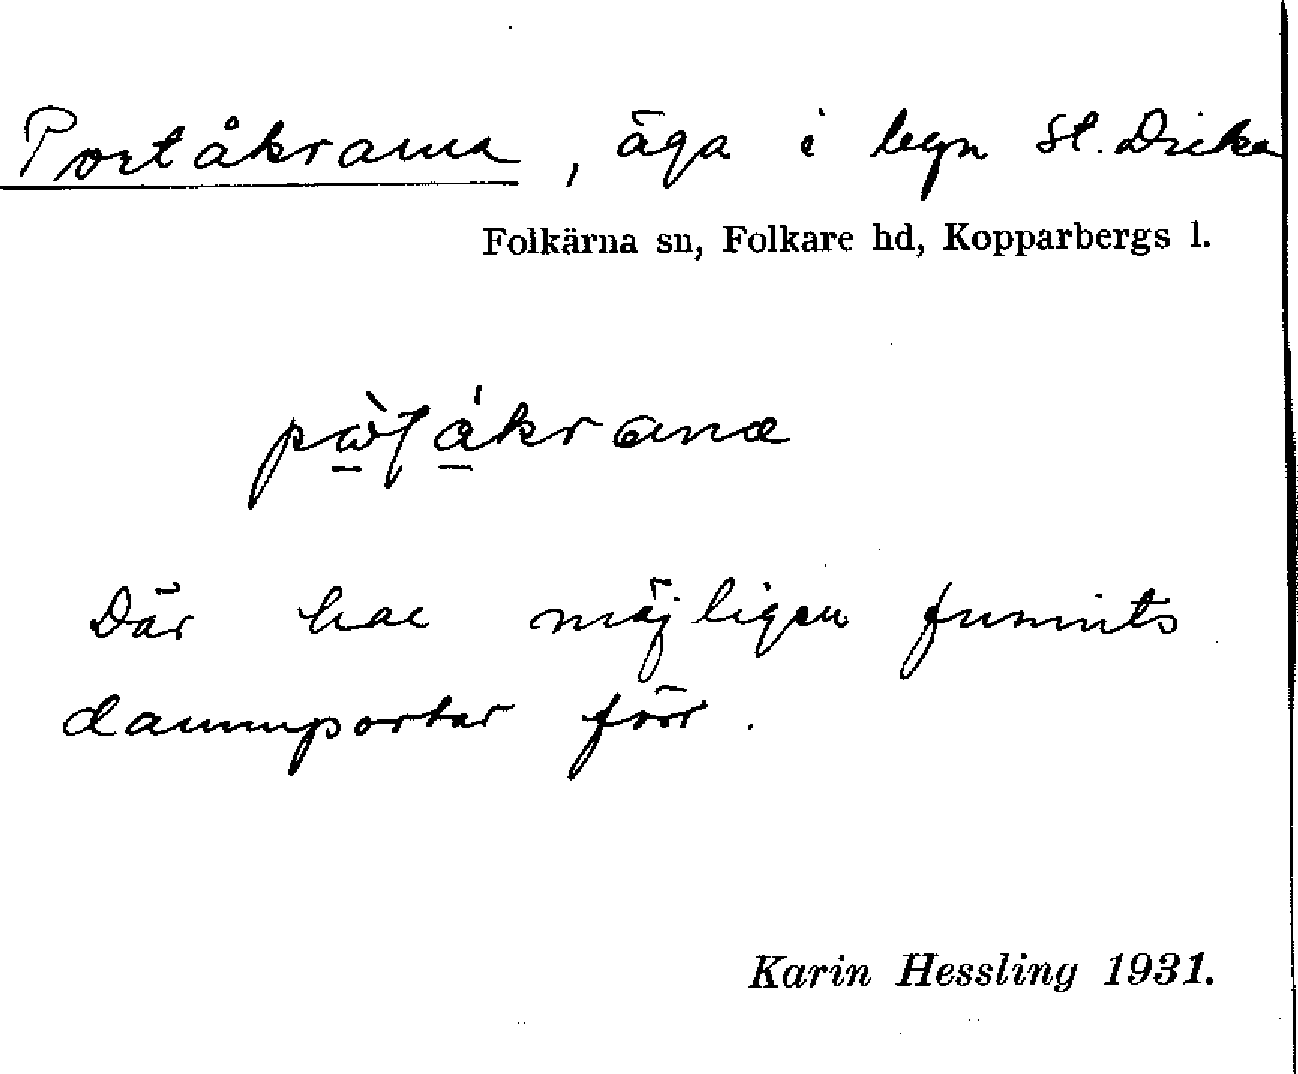 Portåkrarna, äga i byn St. Dicka
Folkärna sn, Folkare hd, Kopparbergs l.
Där har möjligen funnits
dammportar förr.
Karin Hessling 1931.